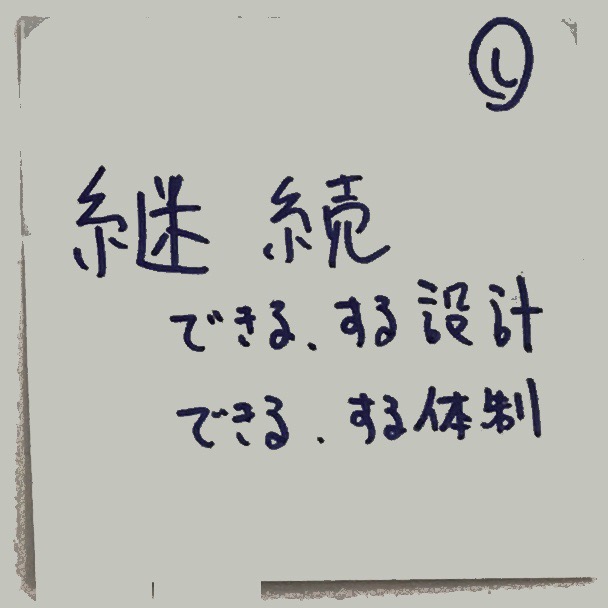 し
継続
できる、する設計
できる、する体制